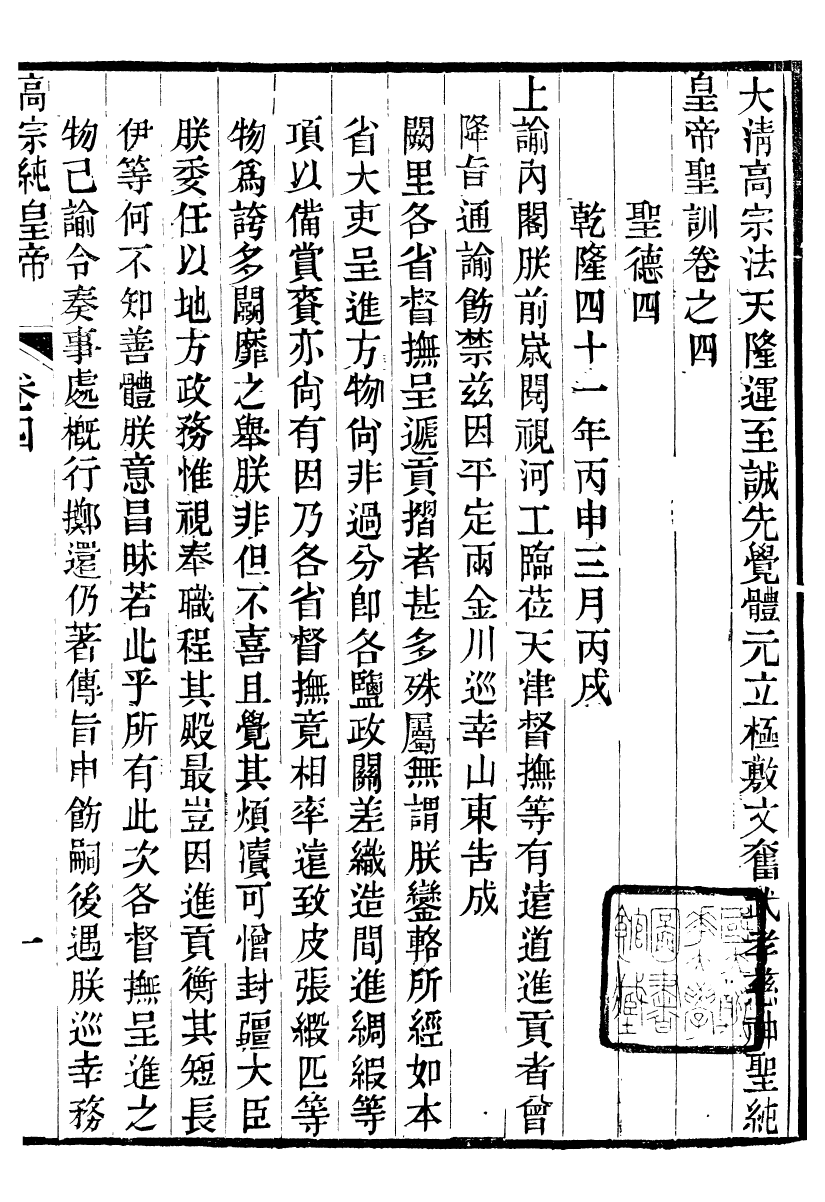 大清高宗法天隆運至誠先覺體元立極敷文奮武孝慈神聖純
皇帝聖訓卷之四
聖德四
乾隆四十一年丙申三月丙戌
上諭內閣朕前嵗閱視河工臨莅天津督撫等有遠道進貢者曾
降旨通諭飭禁茲因平定兩金川巡幸山東告成
闕里各省督撫呈遞貢摺者甚多殊屬無謂朕鑾輅所經如本
省大吏呈進方物尙非過分卽各鹽政關差織造間進綢緞等
項以備賞賚亦尙有因乃各省督撫竟相率遠致皮張緞匹等
物爲誇多鬭靡之舉朕非但不喜且覺其煩瀆可憎封疆大臣
朕委任以地方政務惟視奉職程其殿最豈因進貢衡其短長
伊等何不知善體朕意昌昧若此乎所有此次各督撫呈進之
物己諭令奏事處槪行擲還仍著傳旨申飭嗣後遇朕巡幸務
高宗純皇帝
卷四
一